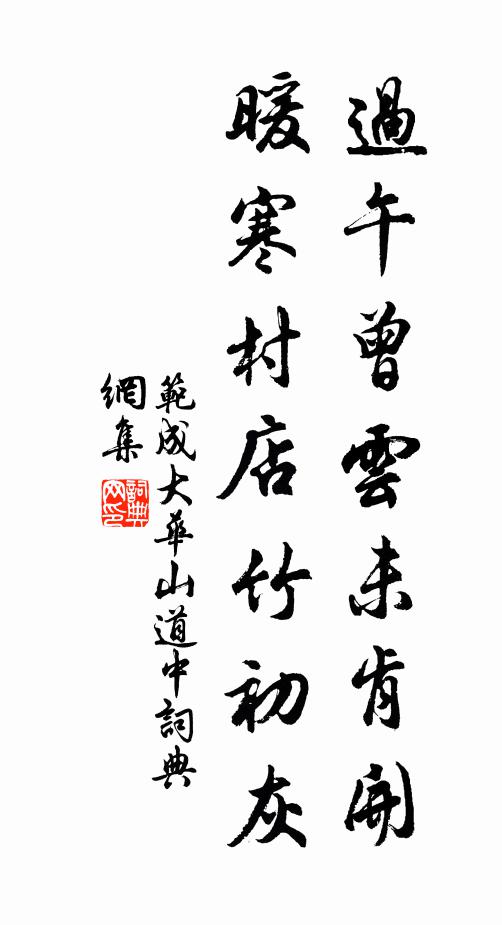 過午曾雲未肯開
暖寒村店竹初灰
範成大華山道中詞典
網集
詞典
网印